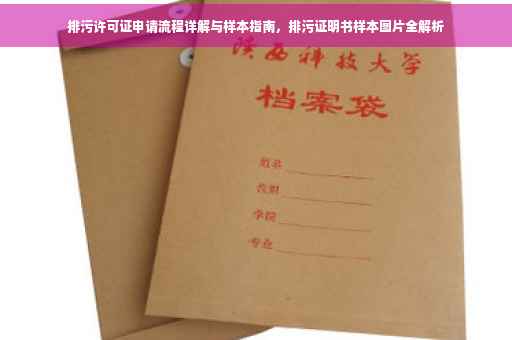 排污许可证申请流程详解与样本指南，排污证明书样本图片全解析
陕西科技大学
档案袋
姓名
学院
专业